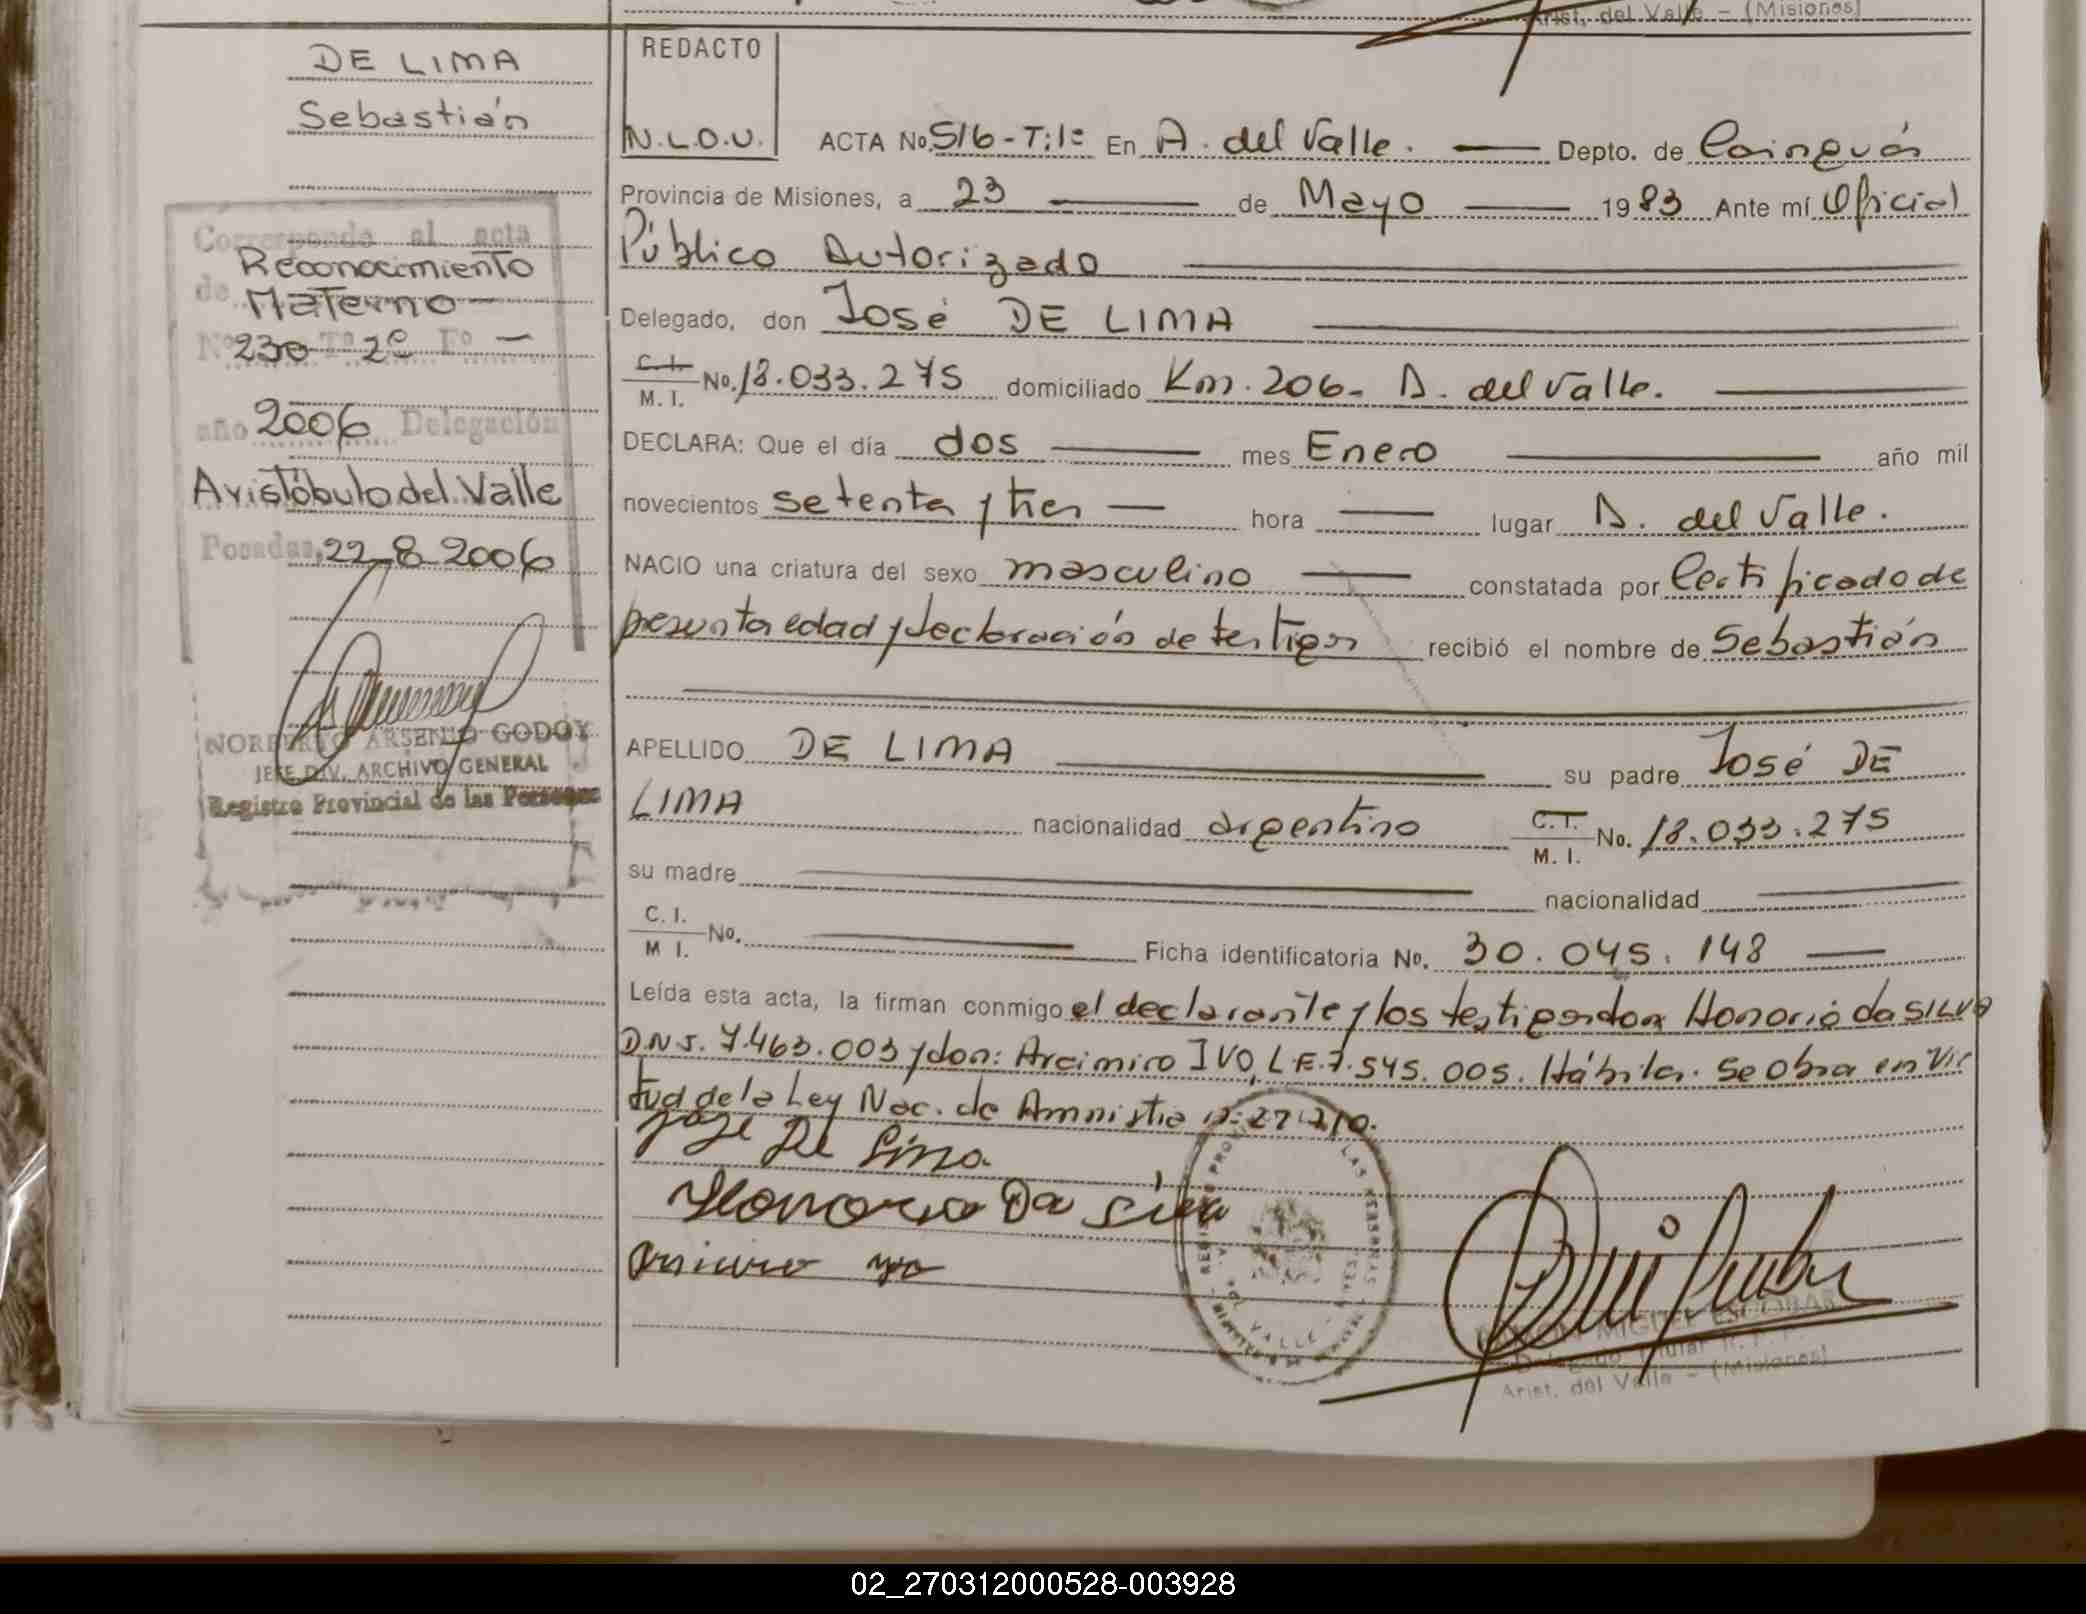 Arist. del Valle - (Misiones)
DE LIMA
Sebastián
REDACTO
N.L.O.U.
ACTA No. 516-T:1º En A. del Valle. Depto. de Cainguás
Provincia de Misiones, a 23 de Mayo 1983 Ante mí Oficial
Público Autorizado
Delegado, don José DE LIMA
C.I. M. I. No. 18.033.275 domiciliado Km. 206- A. del Valle.
DECLARA: Que el día dos mes Enero año mil
novecientos setenta y tres hora lugar A. del Valle.
NACIO una criatura del sexo masculino constatada por Certificado de
presunta edad y declaración de testigos recibió el nombre de Sebastián
APELLIDO DE LIMA su padre José DE
LIMA nacionalidad argentino C.I. M. I. No. 18.033.275
su madre nacionalidad
C. I. M I. No. Ficha identificatoria No. 30.045.148
Leída esta acta, la firman conmigo el declarante y los testigos don Honorio da SILVA
D.N.I. 7.463.003 y don: Arcimiro IVO, L.E. 7.545.005. Hábiles. Se obra en vir
tud de la Ley Nac. de Amnistia
José De Lima
Honorio Da Silva
Corresponde al acta
de Reconocimiento
Materno
Nº 230 Tº 2º Fº -
año 2006 Delegación
Aristóbulo del Valle
Posadas, 22-8-2006
NORBERTO ARSENIO GODOY
JEFE DIV. ARCHIVO GENERAL
Registro Provincial de las Personas
MIGUEL ESCOBAR
Delegado Titular
Arist. del Valle - (Misiones)
02_270312000528-003928